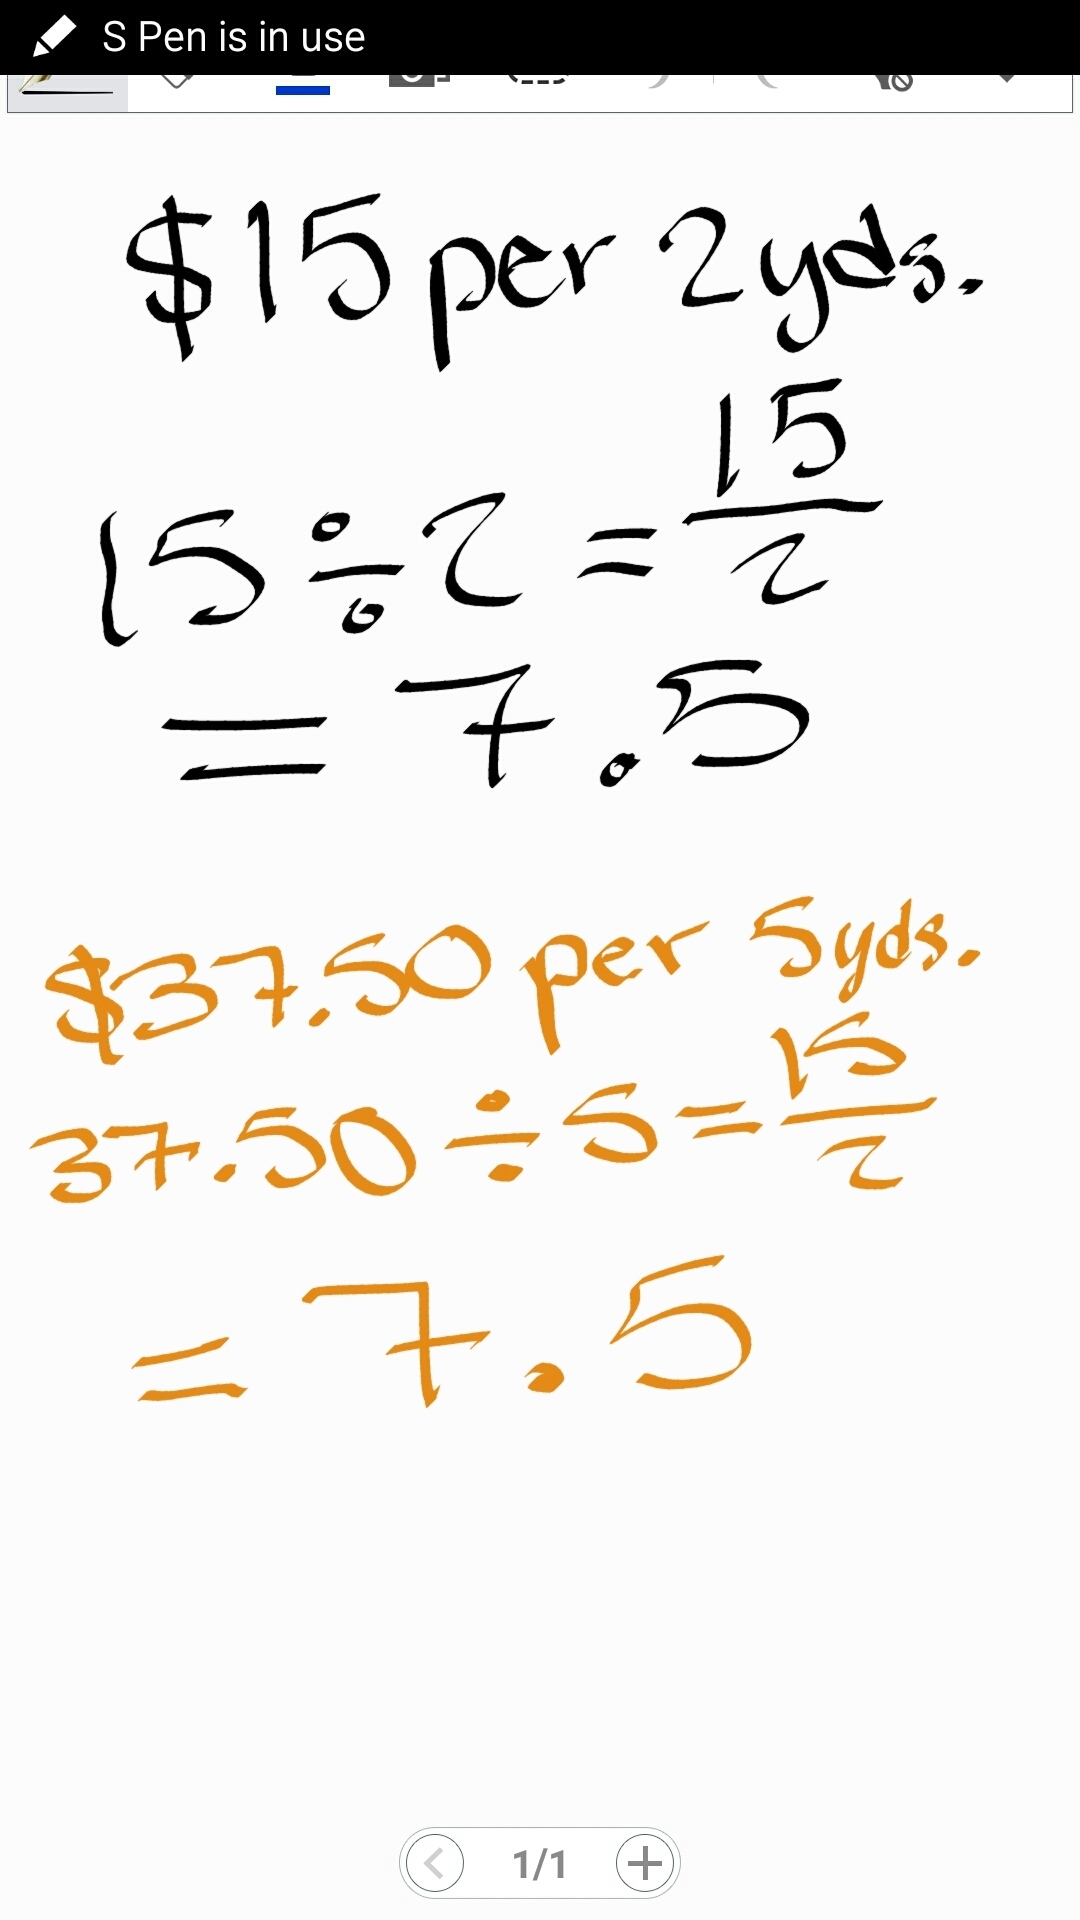 S Pen is in use
$15 per 2 yds.
15 ÷ 2 = 15/2
= 7.5
$37.50 per 5yds.
37.50 ÷ 5 = 15/2
= 7.5
1/1